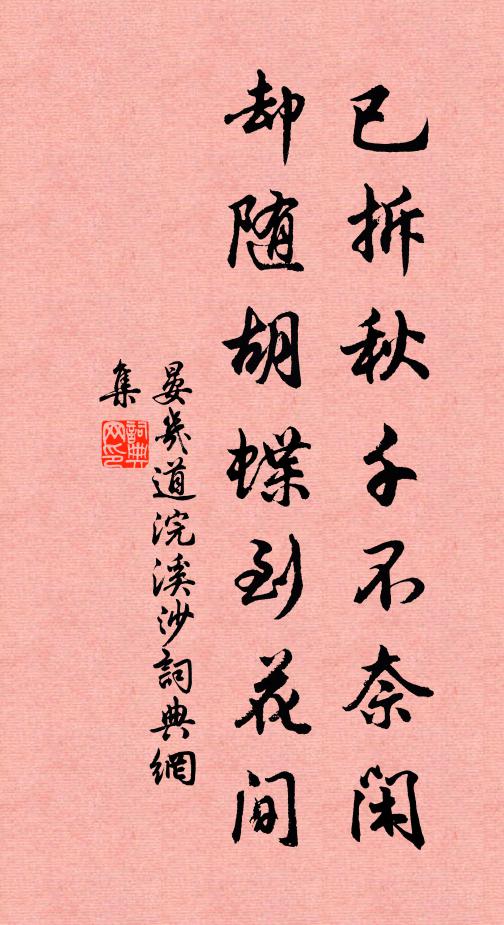 已拆秋千不奈闲
却随胡蝶到花间
晏几道浣溪沙詞典網
集
詞典网印